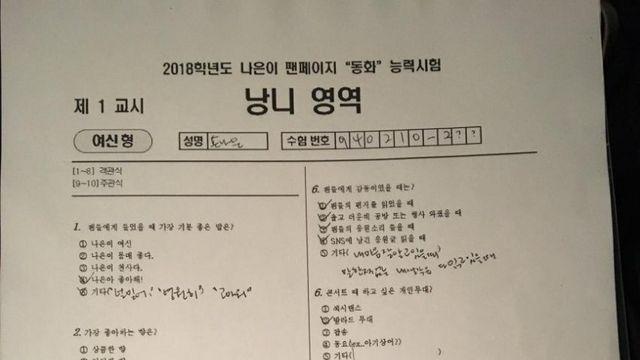 2018학년도 나은이 팬페이지 "동화" 능력시험
제 1 교시
낭니 영역
여신형
성명 손나은
수험 번호 940210-2??
[1~8] 객관식
[9~10]주관식
1. 팬들에게 들었을 때 가장 기분 좋은 말은?
① 나은이 여신
② 나은이 몸매 좋다.
③ 나은이 천사다.
④ 나은아 좋아해!
⑤ 기타(
2. 가장 좋아하는 향은?
① 상큼한 향
6. 팬들에게 감동이었을 때는?
① 팬들의 편지를 읽었을 때
② 춥고 더운데 공방 또는 행사 와줬을 때
③ 팬들의 응원소리 들을 때
④ SNS에 남긴 응원글 읽을 때
⑤ 기타(
6. 콘서트 때 하고 싶은 개인무대?
① 섹시댄스
② 발라드 무대
③ 팝송
④ 동요(ex.아기상어?)
⑤ 기타( )